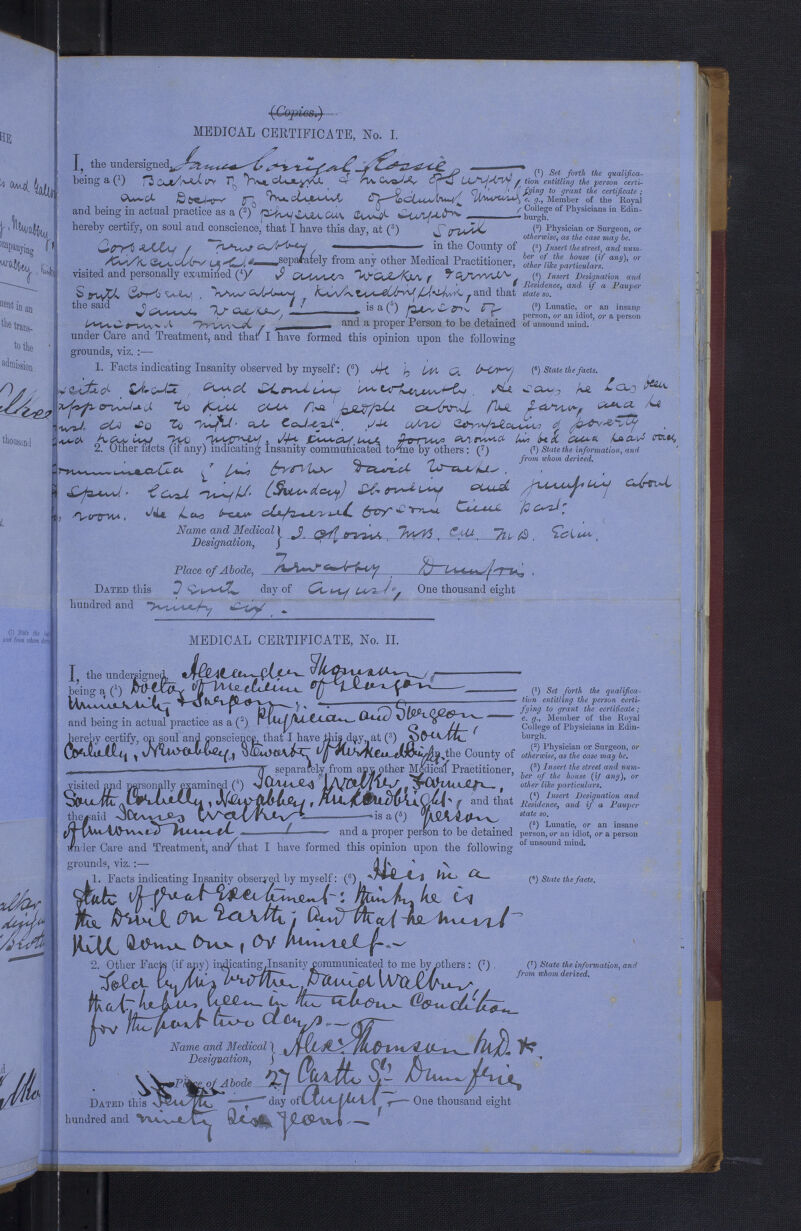 (Copies.)
MEDICAL CERTIFICATE, No. I.
I, the undersigned, James Corrigal Rossie
being a (1) Bachelor of Medicine & Master of Surgery,
and Doctor of Medicine of Edinburgh University
and being in actual practice as a (2) Physician and Surgeon
hereby certify, on soul and conscience, that I have this day, at (3) South
Corbelly, Newabbey in the County of
Kirkcudbright separately from any other Medical Practitioner,
visited and personally examined (4) James Walker, Farmer,
South Corbelly, Newabbey, Kirkcudbrightshire, and that
the said James Walker, is a (5) person of
unsound mind, and a proper Person to be detained
under Care and Treatment, and that I have formed this opinion upon the following
grounds, viz. :—
1. Facts indicating Insanity observed by myself: (6) He is in a very
excited state, and shouting incoherently. He says he has been
appointed to kill all the people about the farm, and he
must do so to night at latest. He also complains of poverty
and having no money. He imagines forms around his bed and hears voices.
2. Other facts (if any) indicating Insanity communicated to me by others: (7)
communicated by his brother David Walker.
Spent last night (Sunday) shouting and jumping about
room. He has been depressed for some time past.
Name and Medical Designation, J. C. Rossie, M.B. C.M. M.D. Edin.
Place of Abode, Newabbey Dumfries.
DATED this Tenth day of August, One thousand eight
hundred and ninety six.
(1) Set forth the qualifica-
tion entitling the person certi-
fying to grant the certificate;
e. g., Member of the Royal
College of Physicians in Edin-
burgh.
(2) Physician or Surgeon, or
otherwise, as the case may be.
(3) Insert the street, and num-
ber of the house (if any), or
other like particulars.
(4) Insert Designation and
Residence, and if a Pauper
state so.
(5) Lunatic, or an insane
person, or an idiot, or a person
of unsound mind.
(6) State the facts.
(7) State the information, and
from whom derived.
MEDICAL CERTIFICATE, No. II.
I, the undersigned, Alexander Thomson
being a (1) Doctor of Medicine of Glasgow
University & Surgeon
and being in actual practice as a (2) Physician and Surgeon
hereby certify, on soul and conscience, that I have this day, at (3) South
Corbelly, Newabbey, Stewartry of Kirkcudbright, in the County of
separately from any other Medical Practitioner,
visited and personally examined (4) James Walker, Farmer,
South Corbelly, Newabbey, Kirkcudbright, and that
the said James Walker is a (5) person
of unsound mind and a proper person to be detained
under Care and Treatment, and that I have formed this opinion upon the following
grounds, viz. :—
1. Facts indicating Insanity observed by myself: (6) He is in a
state of great Excitement: thinks he is
the Devil on Earth; and that he must
kill some one, or himself.
2. Other Facts (if any) indicating Insanity communicated to me by others: (7)
Told by his brother, David Walker,
that he has been in the above Condition
for the past two days.
Name and Medical Designation, Alexr. Thomson M.D. &.
Place of Abode 27 Castle St. Dumfries
DATED this Tenth day of August, One thousand eight
hundred and ninety six years
(1) Set forth the qualifica-
tion entitling the person certi-
fying to grant the certificate;
e. g., Member of the Royal
College of Physicians in Edin-
burgh.
(2) Physician or Surgeon, or
otherwise, as the case may be.
(3) Insert the street and num-
ber of the house (if any), or
other like particulars.
(4) Insert Designation and
Residence, and if a Pauper
state so.
(5) Lunatic, or an insane
person, or an idiot, or a person
of unsound mind.
(6) State the facts.
(7) State the information, and
from whom derived.